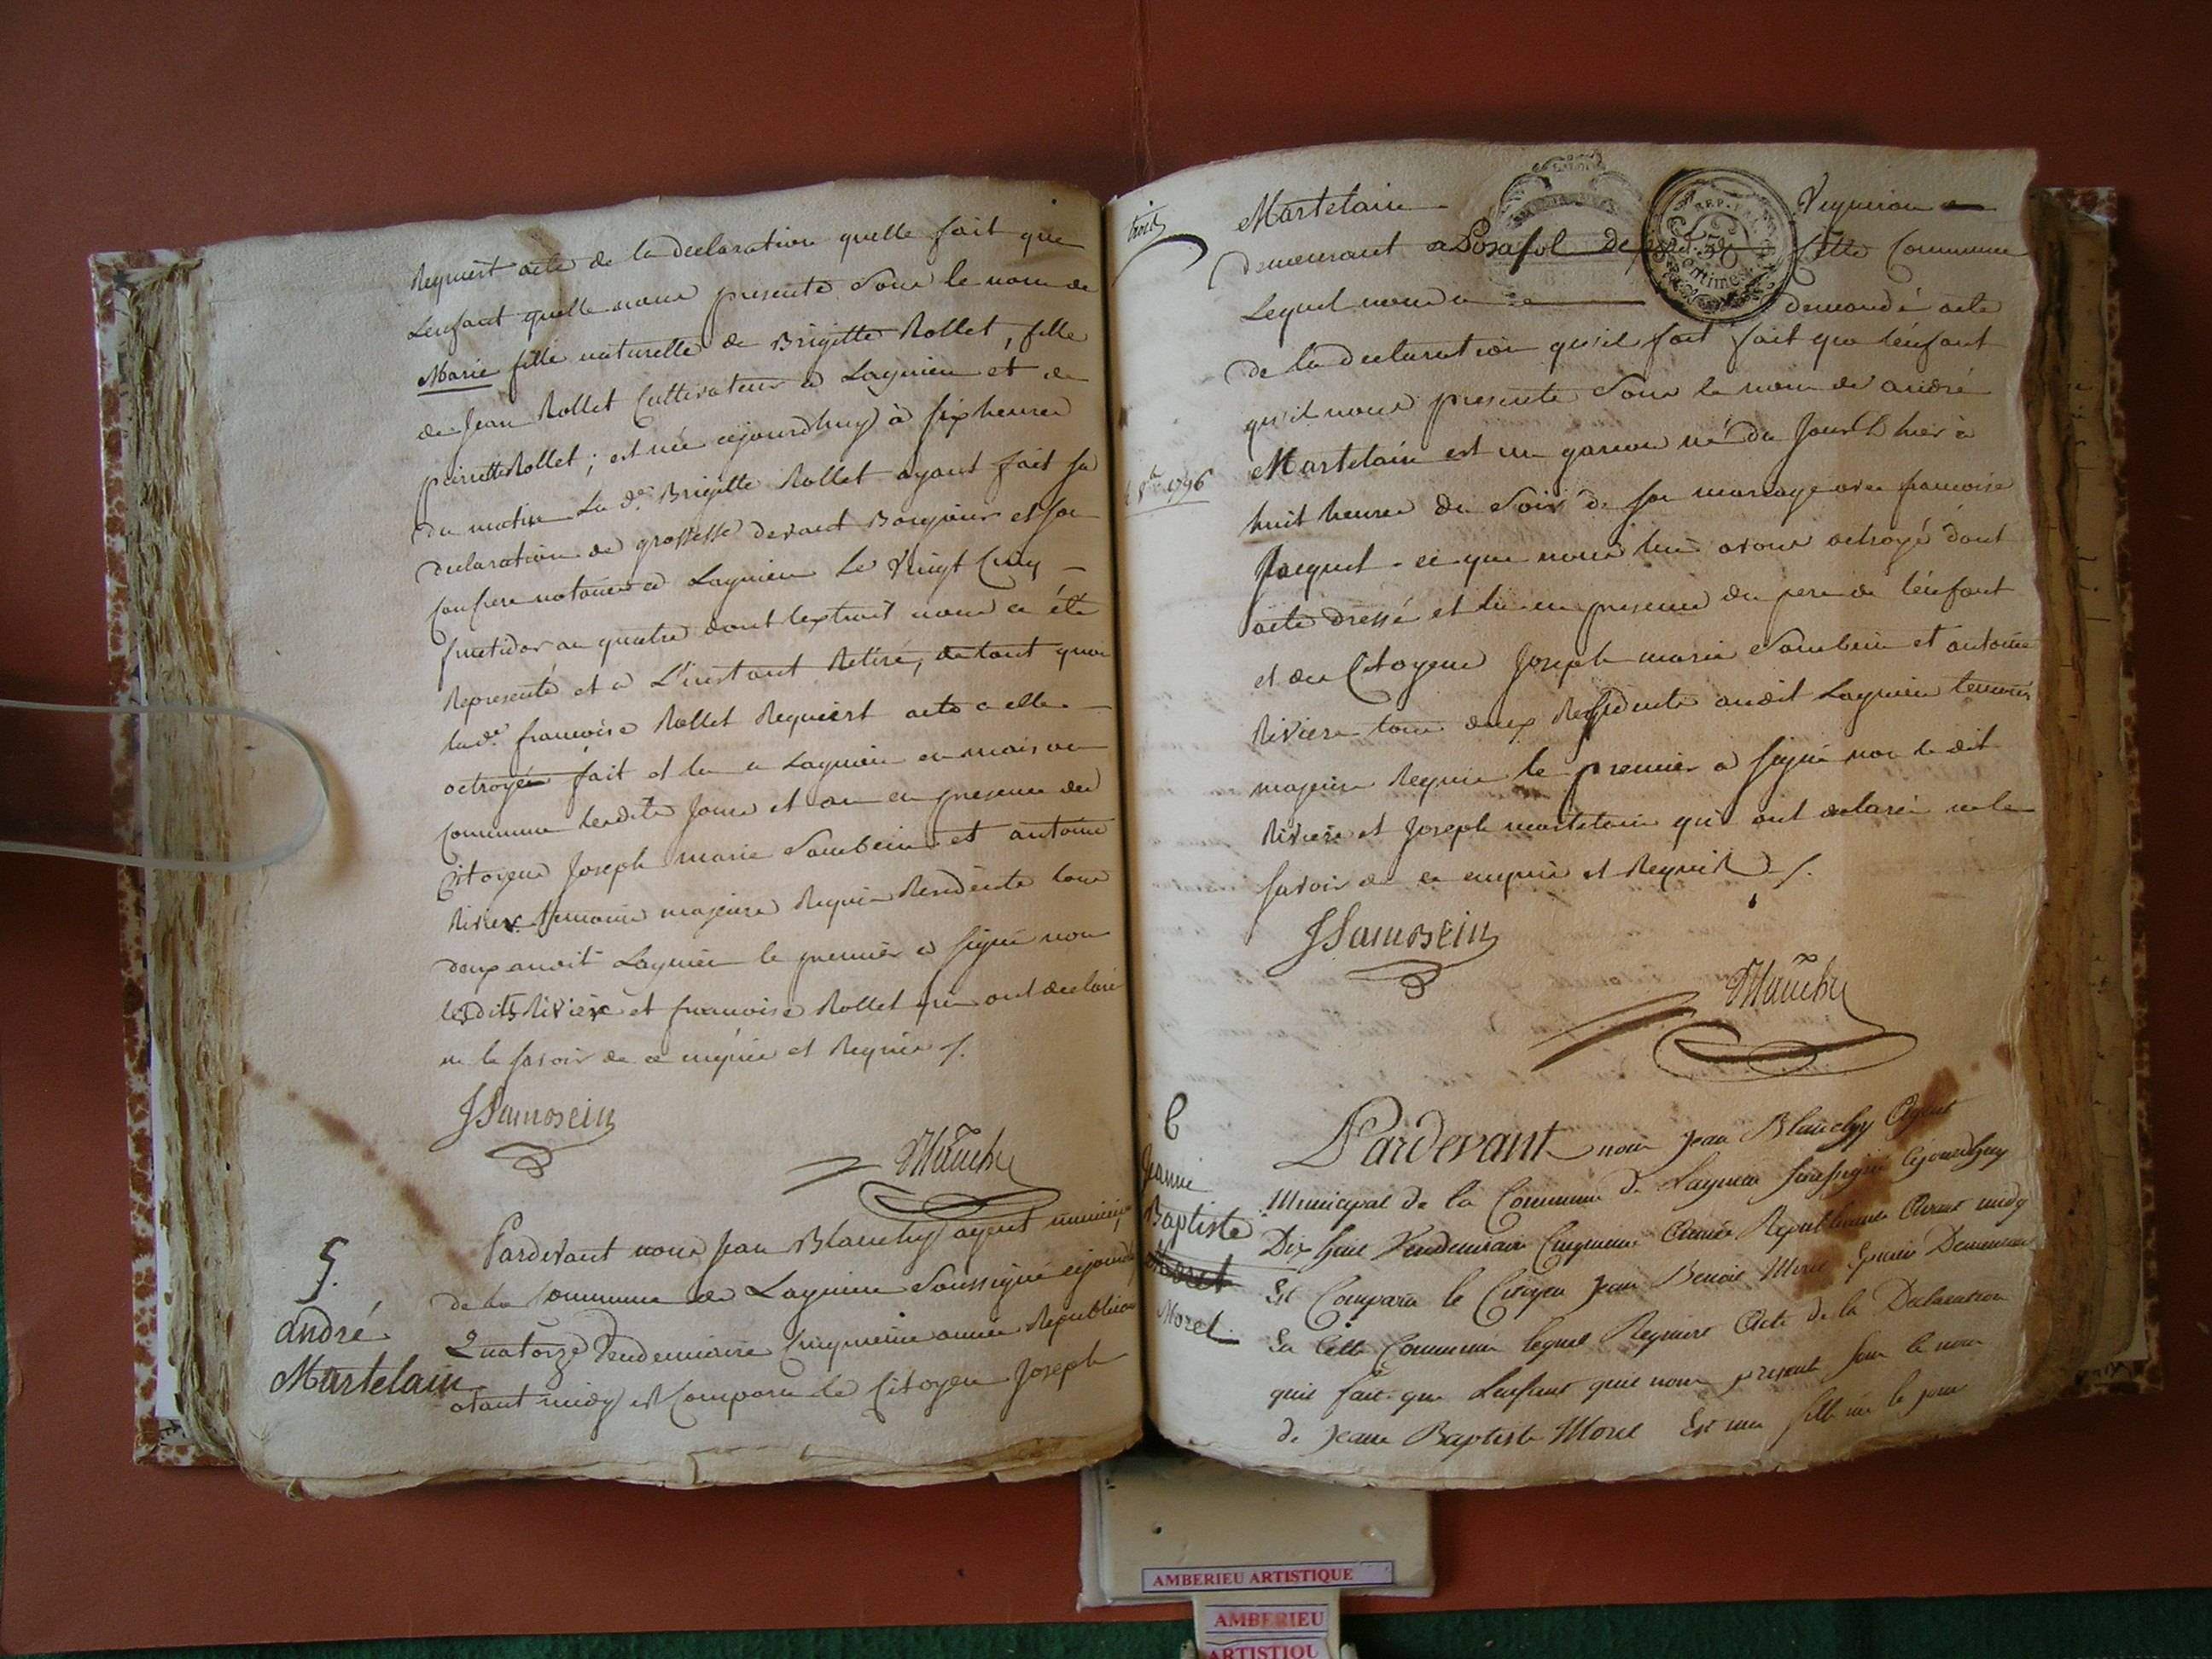 Requiert acte de la declaration quelle fait que
Lenfant quelle nous presente Sous le nom de
Marie fille naturelle de Brigitte Rollet, fille
de Jean Rollet Cultivateur a Lagnieu et de
pierrette Rollet; est née cejourdhuy à six heures
du matin La d.e Brigitte Rollet ayant fait sa
declaration de grossesse devant et son
confrere notaires a Lagnieu le Vingt Cinq
fructidor an quatre dont lextrait nous a été
Representé et a L'instant Retiré, de tout quoi
lad.e francoise Rollet Requiert acte a elle
octroyée fait et lu a Lagnieu en maison
commune lesdits jour et an en presence des
Citoyens Joseph marie Sambein et antoine
Riviere temoins majeurs Requis Residents tous
deux audit Lagnieu le premier a signé non
lesdits Riviere et francoise Rollet qui ont declaré
ne le savoir de ce enquis et Requis /.
JSambein
Blanchy
5.
andré
Martelain
Pardevant nous Jean Blanchy agent municipal
de la Commune de Lagnieu Soussigné cejourdhuy
Quatorze Vendemiaire Cinquieme année Republicaine
avant midy est Comparu le Citoyen Joseph
trois
Martelain Vigneron
demeurant a Posafol de cette Commune
Lequel nous a demandé acte
de la declaration qu'il fait fait que lénfant
qu'il nous presente Sous le nom de andré
Martelain est un garcon né du Jour D'hier à
8.bre 1796
huit heures du Soir de son mariage avec francoise
Jacquet ce que nous lui avons octroyé dont
acte dressé et lu en presence du pere de lénfant
et des Citoyens Joseph marie Sambein et antoine
Riviere tous deux Residents audit Lagnieu temoins
majeurs Requis le premier a signé non le dit
Riviere et Joseph martelain qui ont declaré ne le
savoir de ce enquis et Requis /.
JSambein
Blanchy
6
Jeanne
Baptiste
Morel
Pardevant nous Jean Blanchy Agent
Municipal de la Commune de Lagnieu soussigné Cejourdhuy
Dix huit Vendemiaire Cinquieme Année Republicaine Avant midy
Est Comparu le Citoyen Jean Benoit Morel Demeurant
En Cette Commune lequel Requiert Acte de la Declaration
quil fait que Lenfant quil nous presente sous le nom
de Jeane Baptiste Morel Est une fille née le jour
REP. FRA.
50
Centimes
AMBERIEU ARTISTIQUE
AMBERIEU
ARTISTIQU